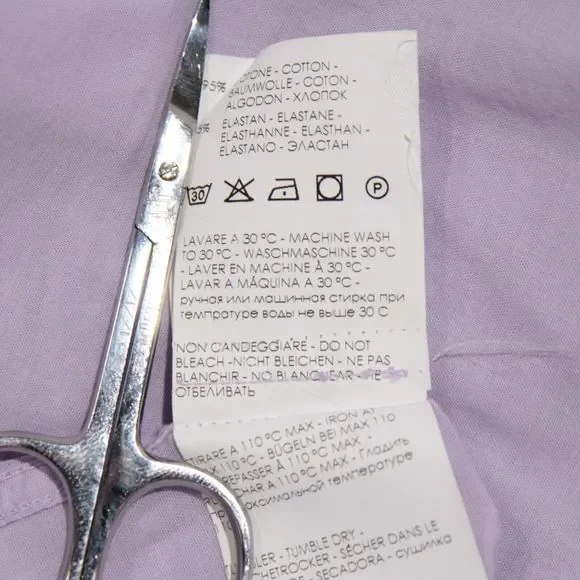 95% COTONE - COTTON -
BAUMWOLLE - COTON -
ALGODON - ХЛОПОК
5% ELASTAN - ELASTANE -
ELASTHANNE - ELASTHAN -
ELASTANO - ЭЛАСТАН
30 P
LAVARE A 30 °C - MACHINE WASH
TO 30 °C - WASCHMASCHINE 30 °C
- LAVER EN MACHINE À 30 °C -
LAVAR A MÁQUINA A 30 °C -
ручная или машинная стирка при
темпратуре воды не выше 30 С
NON CANDEGGIARE - DO NOT
BLEACH -NICHT BLEICHEN - NE PAS
BLANCHIR - NO BLANQUEAR - НЕ
ОТБЕЛИВАТЬ
TIRARE A 110 °C MAX - IRON AT
110 °C - BÜGELN BEI MAX 110
REPASSER À 110 °C MAX -
110 °C MAX - Гладить
температуре
TUMBLE DRY -
- SÉCHER DANS LE
SECADORA - сушилка